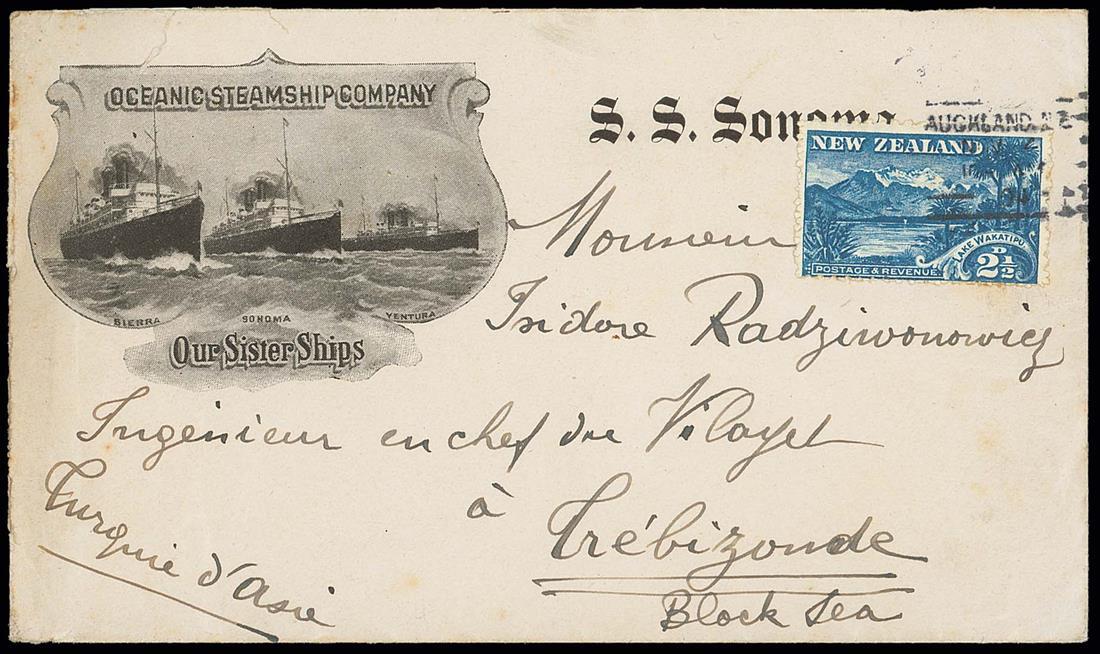 OCEANIC STEAMSHIP COMPANY
SIERRA
SONOMA
VENTURA
Our Sister Ships
S. S. Sonoma
AUCKLAND. N Z
NEW ZEALAND
LAKE WAKATIPU
POSTAGE & REVENUE
2½D
Monsieur
Isidore Radziwonowicz
Ingénieur en chef du Vilayet
à Trébizonde
Black Sea
Turquie d'Asie